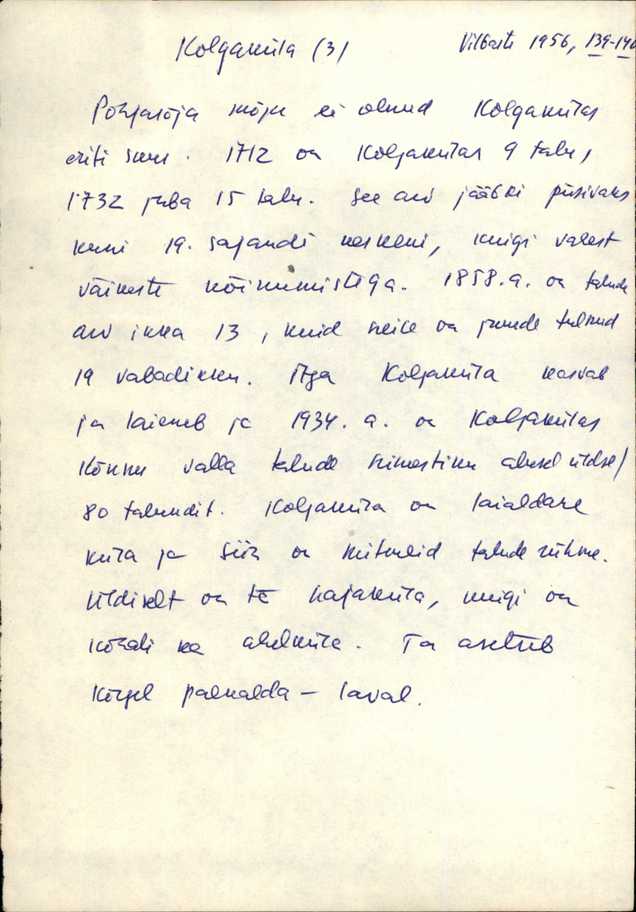 Kolgaküla (3) Vilbaste 1956, 139-140
Põhjasõja mõju ei olnud Kolgakülas
eriti suur. 1712 on Kolgakülas 9 talu,
1732 juba 15 talu. See arv jääbki püsivaks
kuni 19. sajandi keskeni, kuigi vahest
väikeste kõikumistega. 1858. a. on talude
arv ikka 13, kuid neile on juurde tulnud
19 vabadikku. Aga Kolgaküla kasvab
ja laieneb ja 1934. a. on Kolgakülas
Kõnnu valla talude nimestiku alusel üldse
80 talundit. Kolgaküla on laialdane
küla ja siin on mitmeid talude rühme.
Üldiselt on ta hajaküla, kuigi on
kohati ka ahelküla. Ta asetseb
kõrgel paekalda - laval.